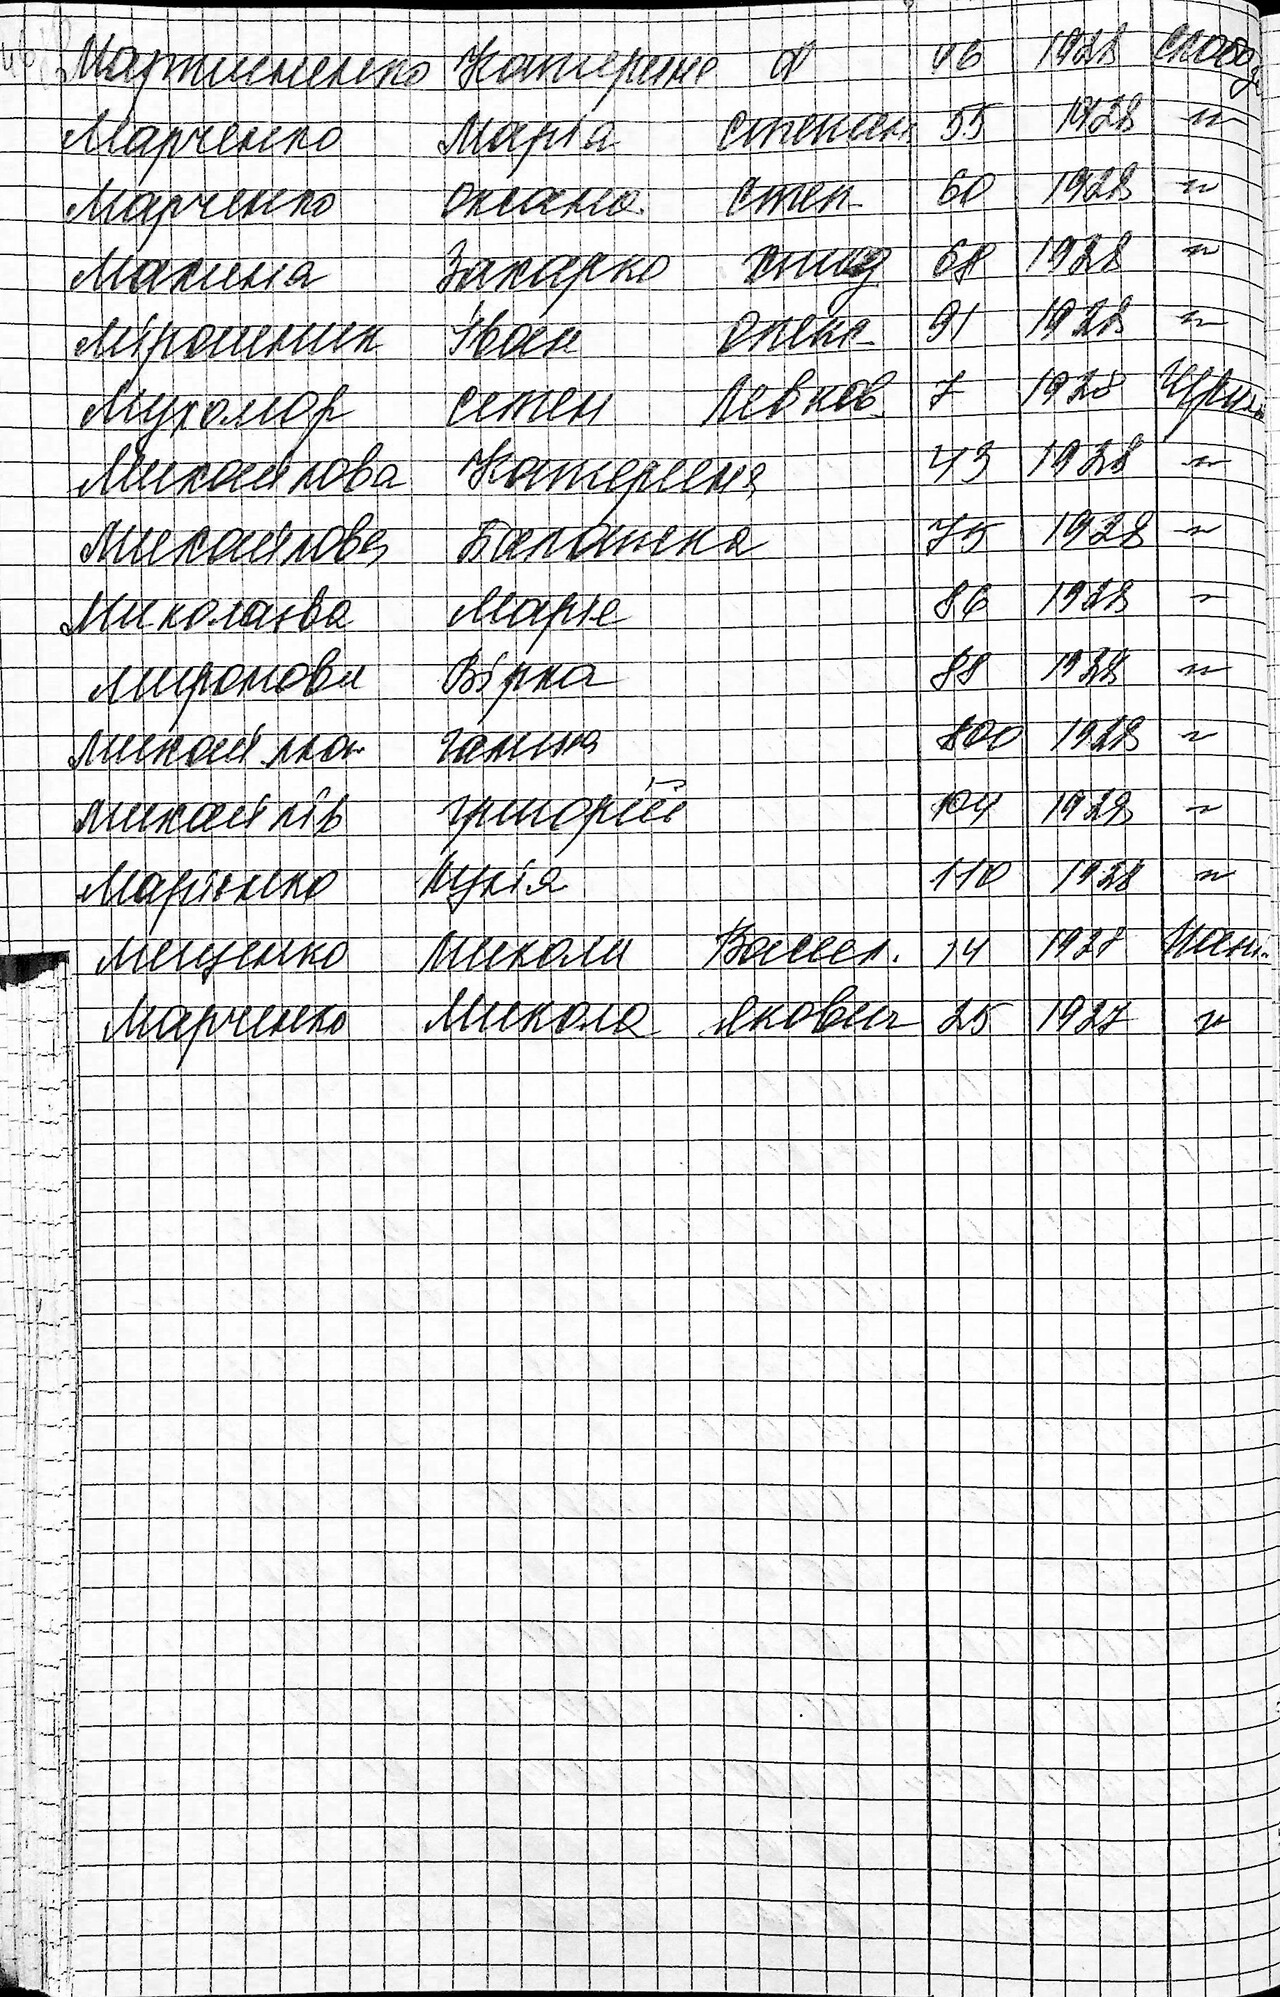 Мартиненко Катерина Ф 46 1928 слобод
Марченко Марія Степан. 55 1928 "
Марченко Оксана Степ. 60 1928 "
Махиня Захарко Спир 68 1928 "
Мірошник Іван Олекс. 91 1928 "
Мухомор Семен Левков. 7 1928
Михайлова Катерина 43 1928 "
Михайлова 75 1928 "
Миколаєва Марія 86 1928 "
Миронова Вірка 88 1928 "
Ганна 100 1928 "
Михайлів Григорій 104 1928 "
Марієнко Лукія 110 1928 "
Мищенко Микола Васил. 14 1927
Марченко Микола Якович 25 1927 "